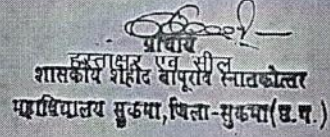 प्राचार्य
हस्ताक्षर एवं सील
शासकीय शहीद बापूराव स्नातकोत्तर
महाविद्यालय सुकमा, जिला-सुकमा (छ.ग.)